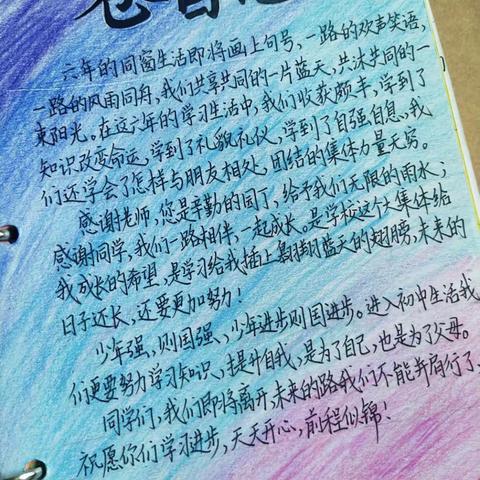 六年的同窗生活即将画上句号,一路的欢声笑语,
一路的风雨同舟,我们共享共同的一片蓝天,共沐共同的一
束阳光。在这六年的学习生活中,我们收获颇丰,学到了
知识改变命运,学到了礼貌礼仪,学到了自强自息、我
们还学会了怎样与朋友相处,团结的集体力量无穷。
感谢老师,您是辛勤的园丁,给予我们无限的雨水;
感谢同学,我们一路相伴,一起成长。是学校这个大集体给
我成长的希望,是学习给我插上翱翔蓝天的翅膀,未来的
日子还长,还要更加努力!
少年强,则国强、少年进步则国进步。进入初中生活我
们更要努力学习知识、提升自我,是为了自己,也是为了父母。
同学们,我们即将离开,未来的路我们不能并肩行了、
祝愿你们学习进步,天天开心,前程似锦!